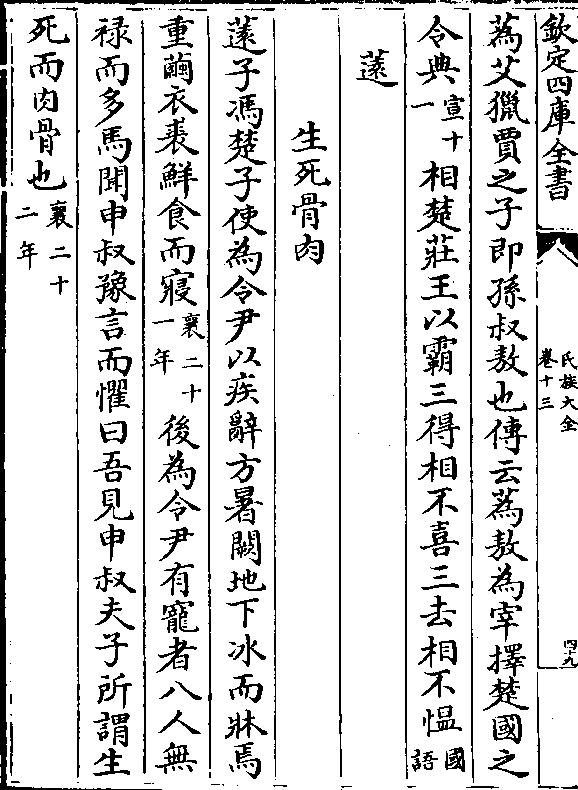 欽定四庫全書
氏族大全
卷十三
四十九
蒍艾獵賈之子即孫叔敖也傳云蒍敖為宰擇楚國之
令典宣十一相楚莊王以霸三得相不喜三去相不愠國語
薳
生死骨肉
薳子馮楚子使為令尹以疾辭方暑闕地下冰而牀焉
重繭衣裘鮮食而寢襄二十一年後為令尹有寵者八人無
祿而多馬聞申叔豫言而懼曰吾見申叔夫子所謂生
死而肉骨也襄二十二年